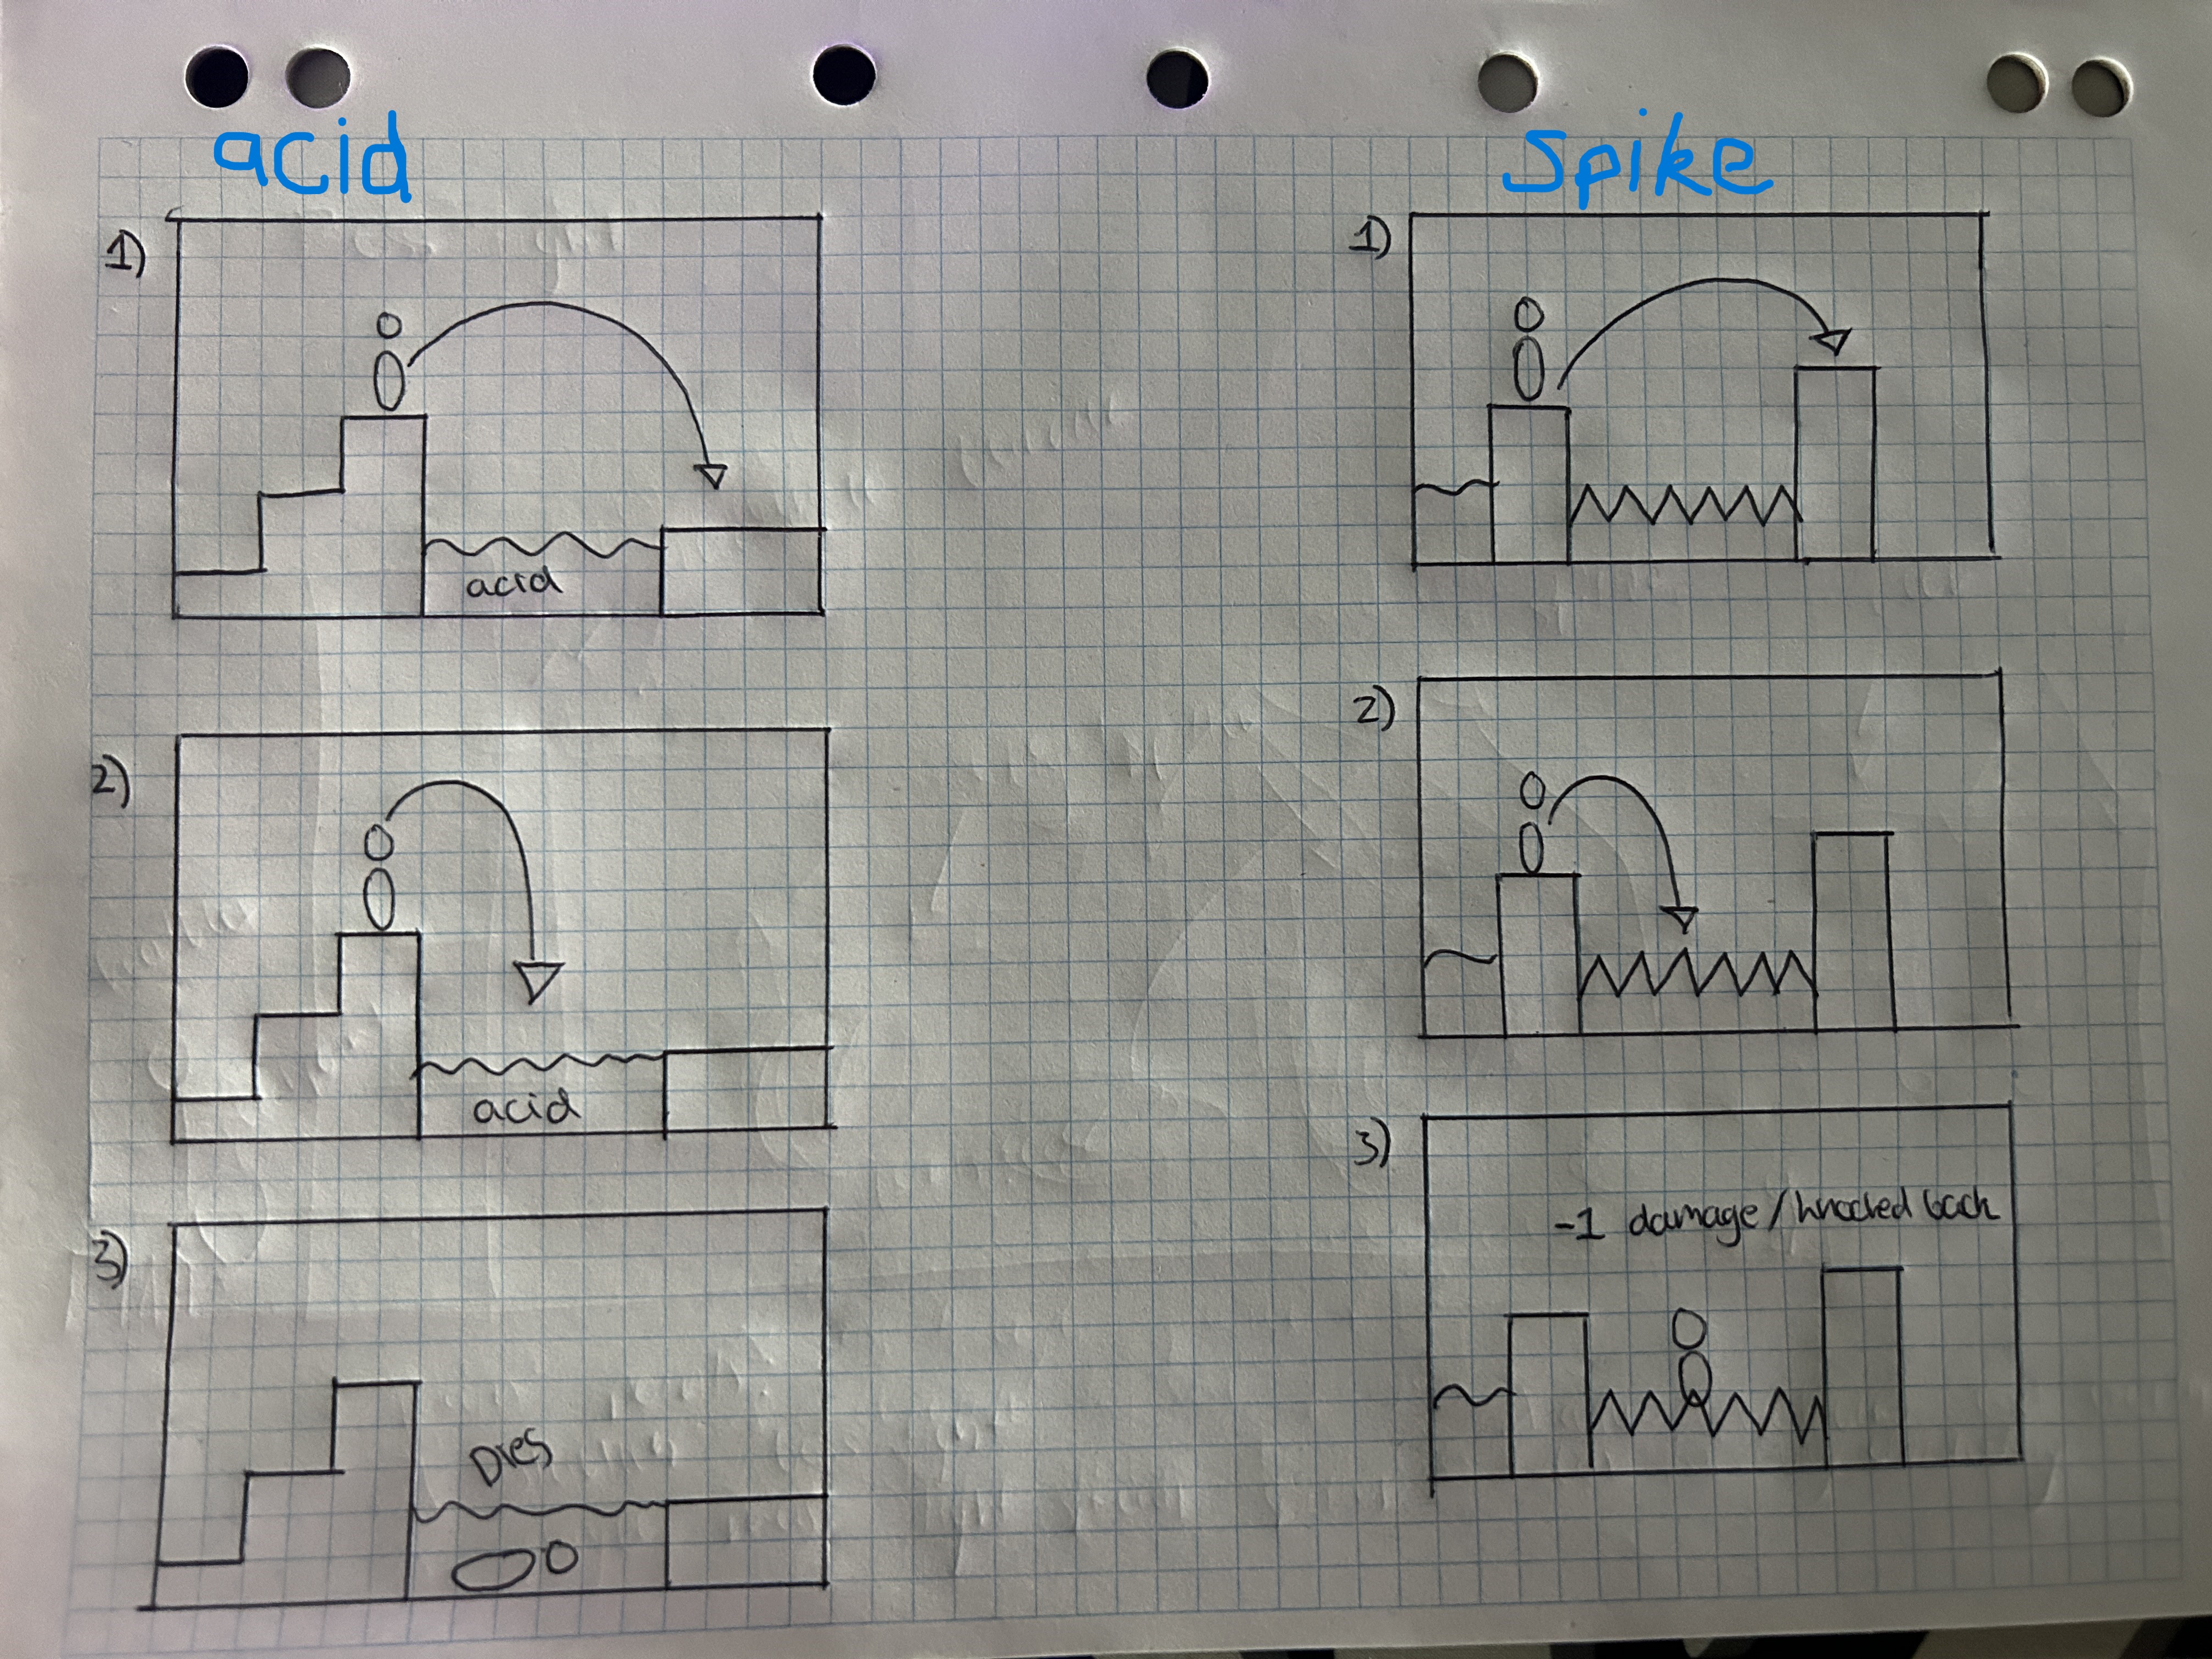 acid
1)
acid
2)
acid
3)
Dies
Spike
1)
2)
3)
-1 damage/knocked back